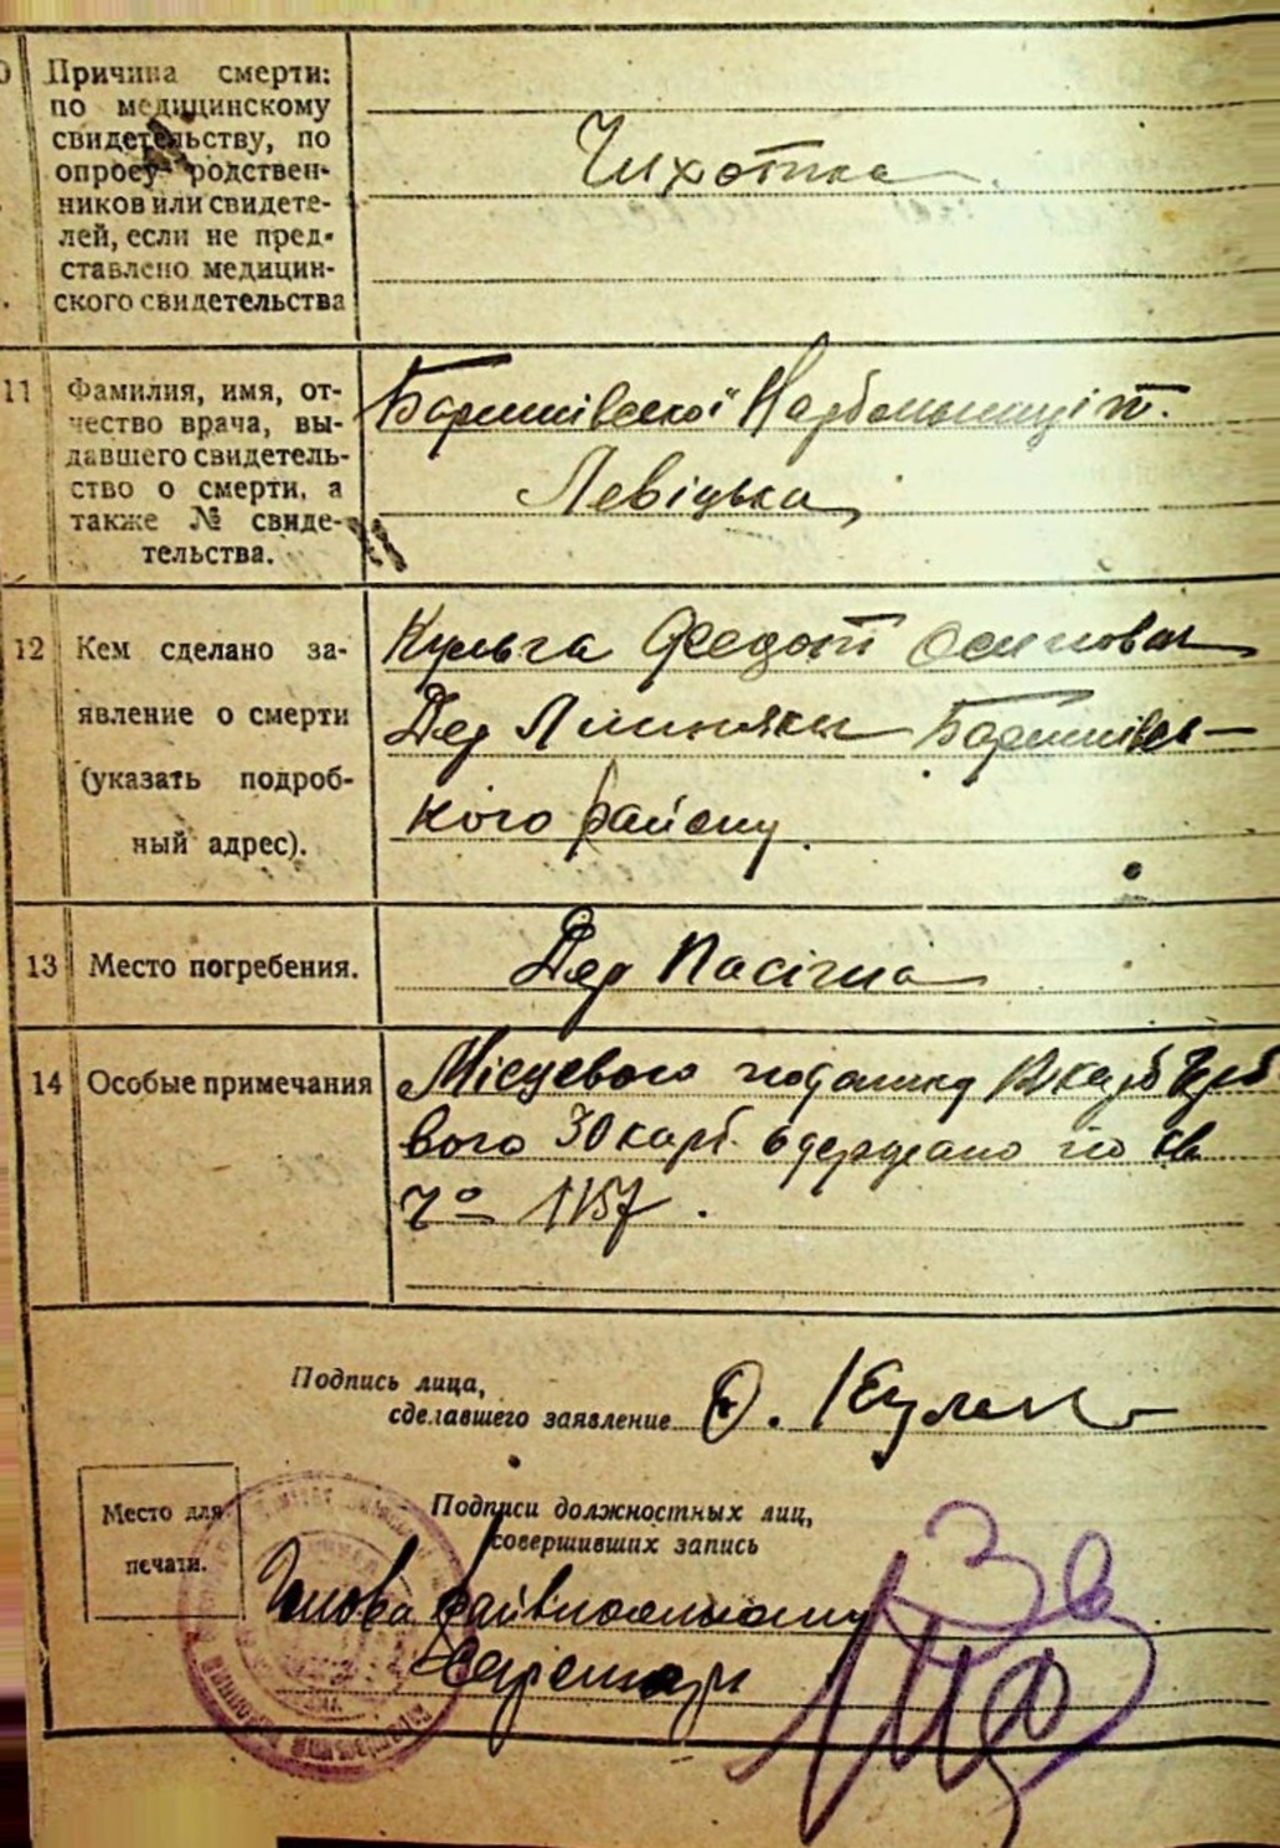 Причина смерти:
по медицинскому
свидетельству, по
опросу родствен-
ников или свидете-
лей, если не пред-
ставлено медицин-
ского свидетельства
Чихотка
11 Фамилия, имя, от-
чество врача, вы-
давшего свидетель-
ство о смерти, а
также № свиде-
тельства.
Баришівської
Левіцька
12 Кем сделано за-
явление о смерти
(указать подроб-
ный адрес).
Кульга Федот Осипович
Дер Лихняки Баришівсь-
кого району
13 Место погребения.
Дер Пасічна
14 Особые примечания
Місцевого податку
вого 30 карб. одержано по кв
1157.
Подпись лица,
сделавшего заявление
Место для
печати.
Подписи должностных лиц,
совершивших запись
Голова
Секретарь